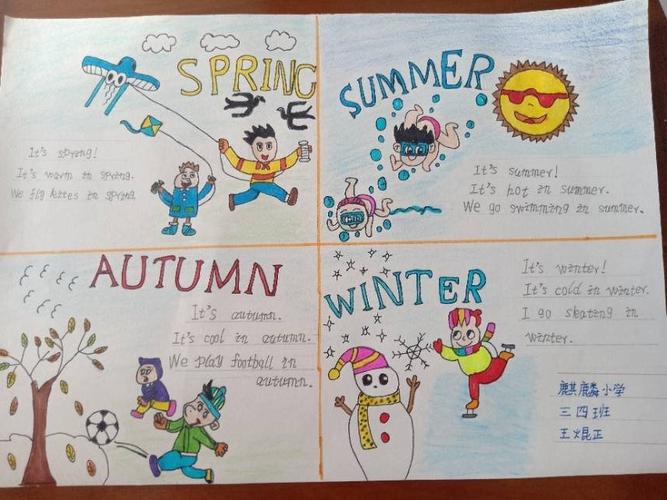 SPRING
It's spring!
It's warm in spring.
We fly kites in spring
SUMMER
It's summer!
It's hot in summer.
We go swimming in summer.
AUTUMN
It's autumn.
It's cool in autumn.
We play football in
autumn.
WINTER
It's winter!
It's cold in winter.
I go skating in
winter.
麒麟小学
三四班
王焜正